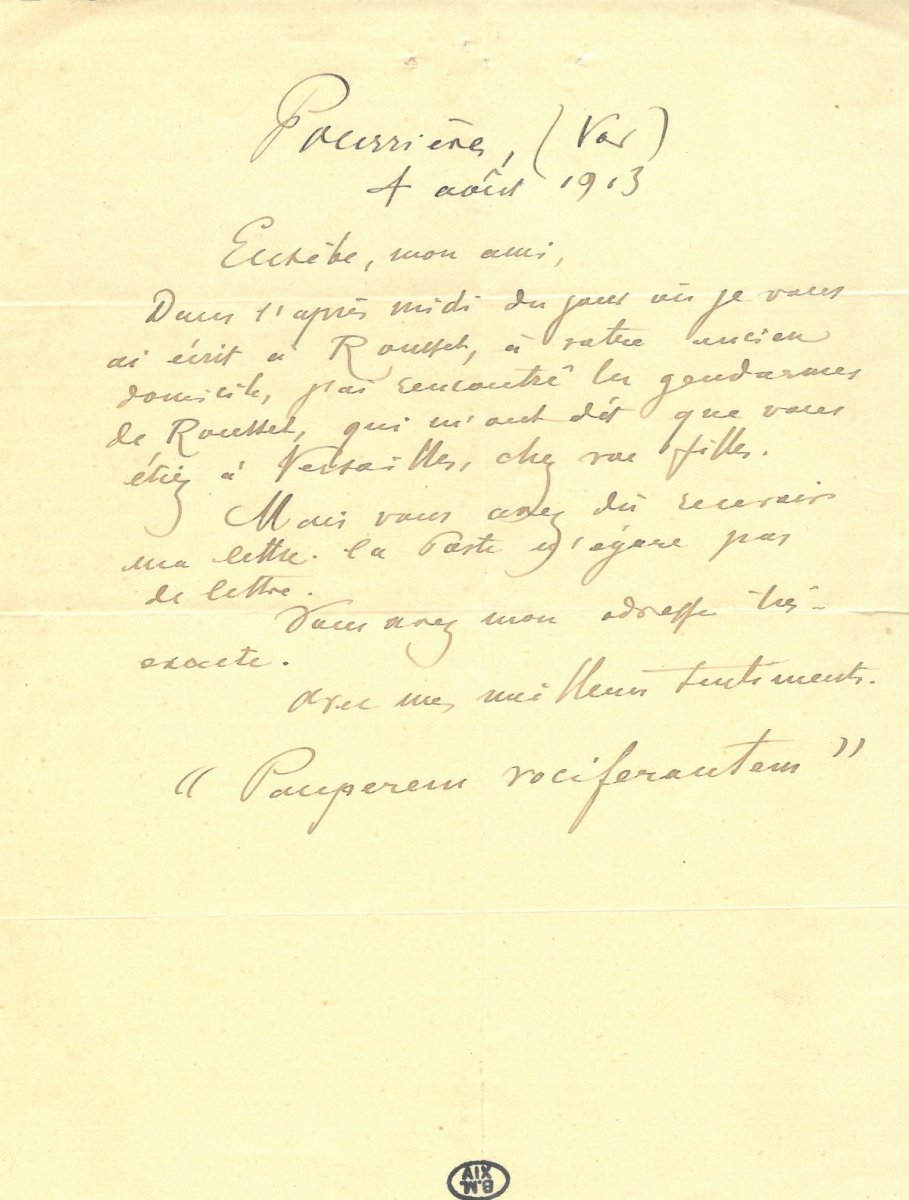 Pourrières, (Var)
4 août 1913
Eusèbe, mon ami,
Dans l'après midi du jour où je vous
ai écrit à Rousset, à votre ancien
domicile, j'ai rencontré les gendarmes
de Rousset, qui m'ont dit que vous
étiez à Versailles, chez vos filles.
Mais vous avez dû recevoir
ma lettre. la Poste n'égare pas
de lettre.
Vous avez mon adresse très-
exacte.
Avec mes meilleurs sentiments.
"Pauperem vociferantem"
B.M.
AIX